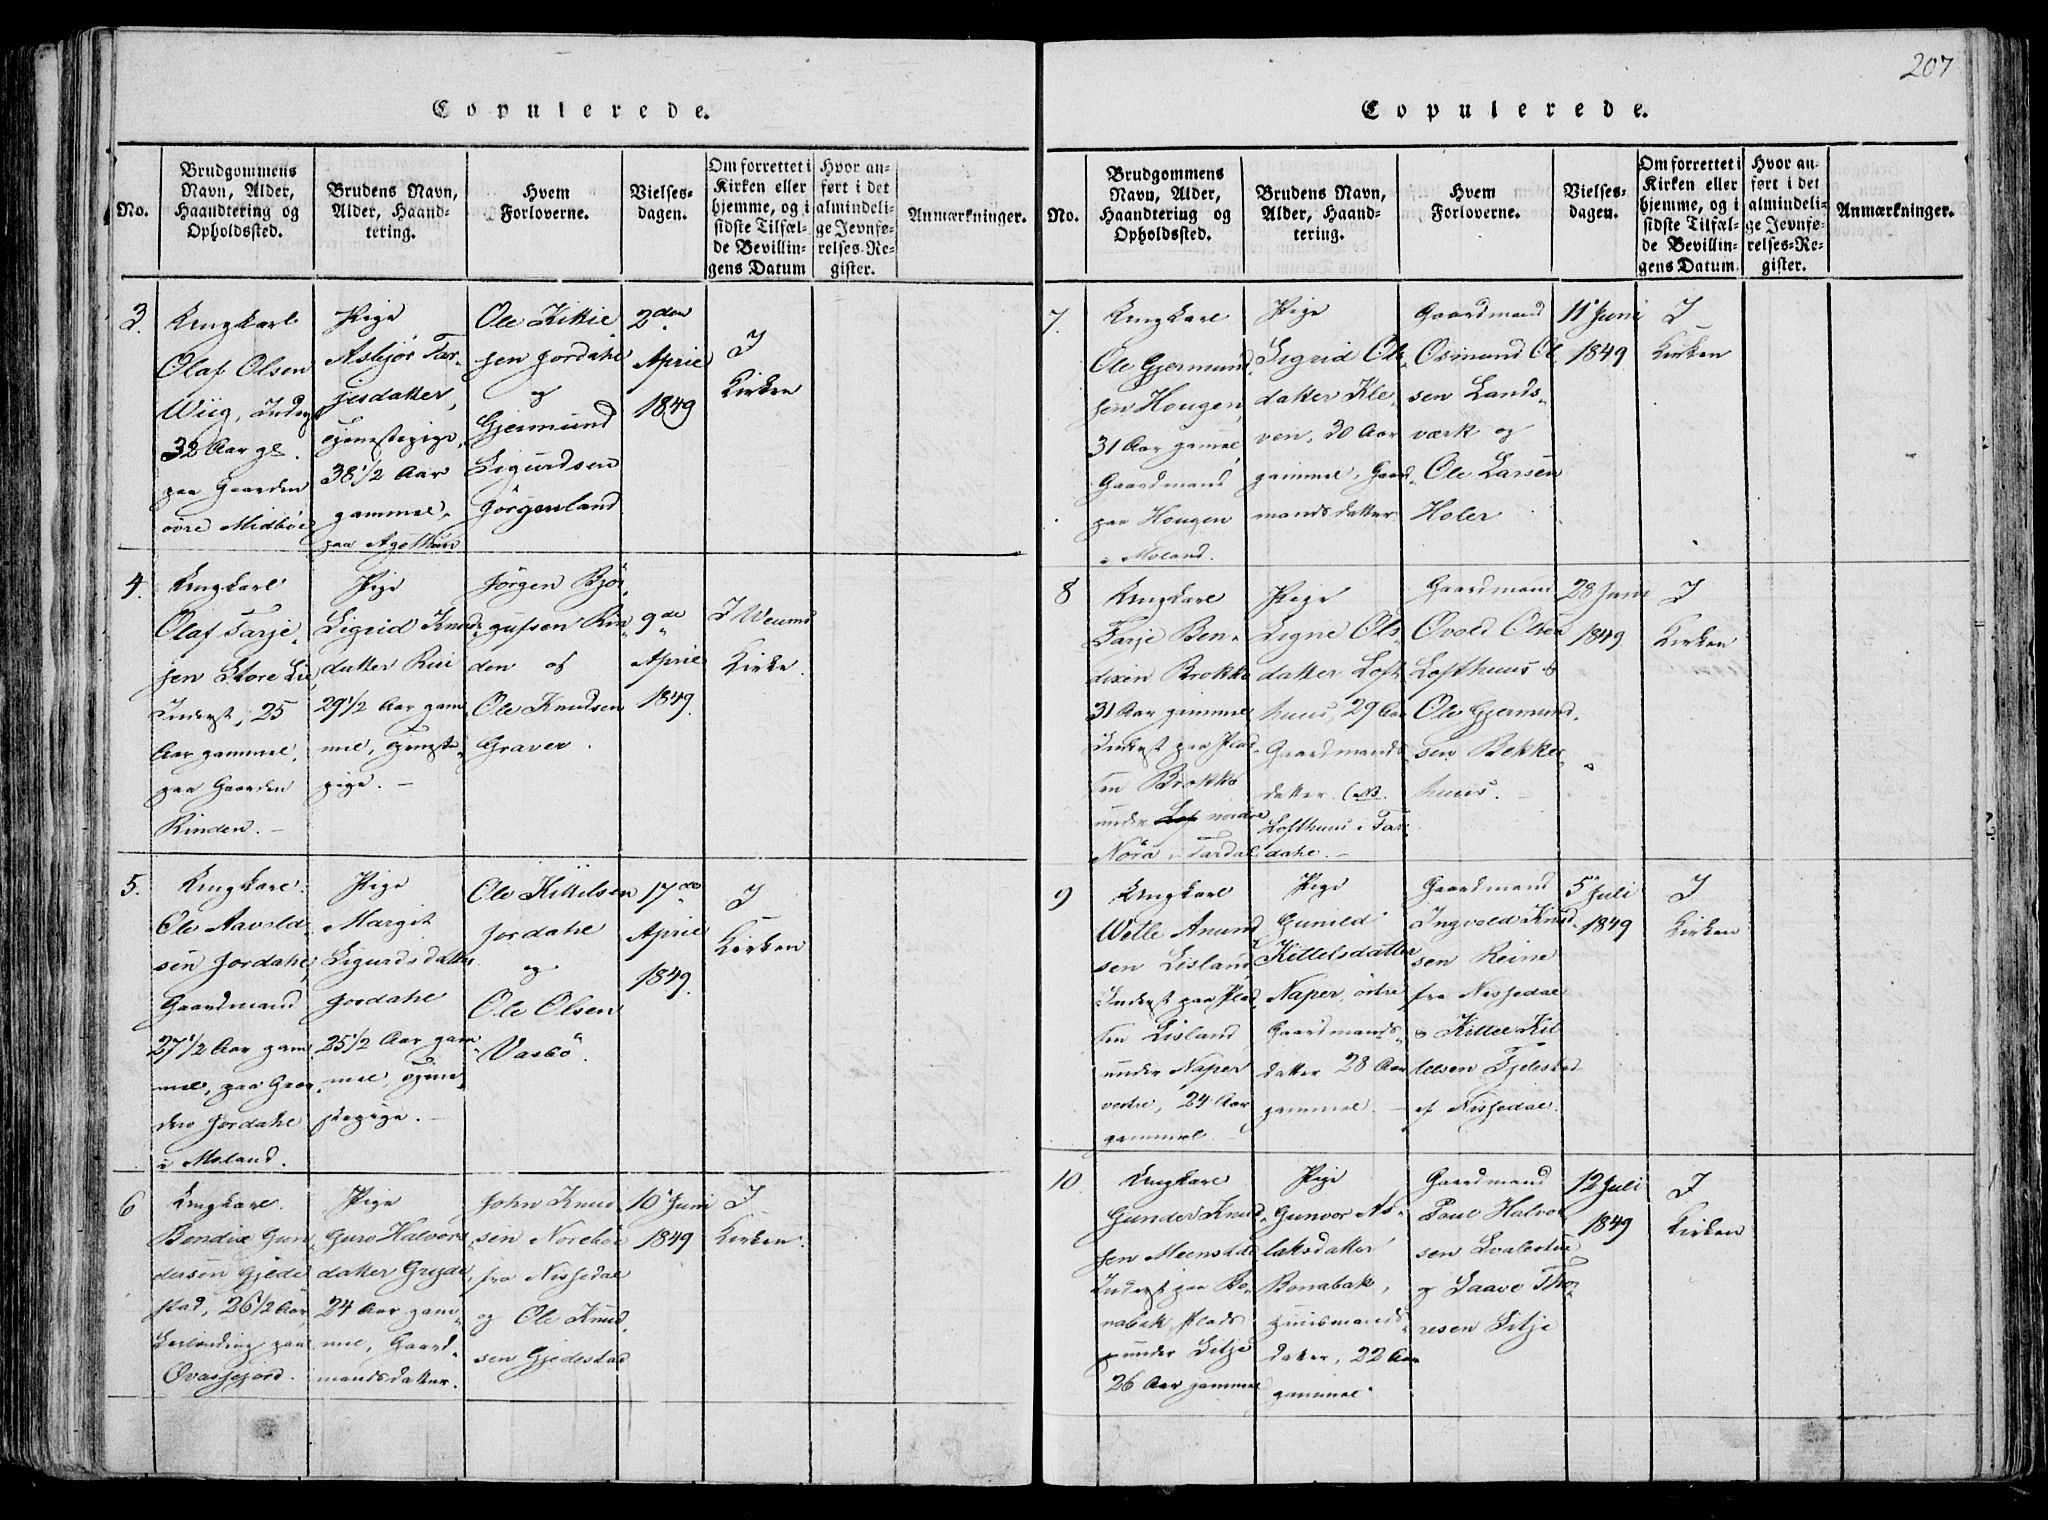 207
Copulerede.
No.
Brudgommens
Navn, Alder,
Haandtering og
Opholdssted.
Brudens Navn,
Alder, Haand-
tering.
Hvem
Forloverne.
Vielses-
dagen.
Om forrettet i
Kirken eller
hjemme, og i
sidste Tilfæl-
de Bevillin-
gens Datum
Hvor an-
ført i det
almindeli-
ge Jevnfø-
relses-Re-
gister.
Anmærkninger.
3.
Ungkarl
Olaf Olsen
Wiig, Inderst
32 Aar gl.
paa Gaarden
övre Midböe
Pige
Asbjør Tar-
jesdatter,
Tjenestepige,
38 1/2 Aar
gammel,
paa
Ole Kittil-
sen Jordahl
og
Gjermund
Sigurdsen
Jörgenland
2den
April
1849
I
Kirken
4.
Ungkarl
Olaf Tarje-
sen Store Lie
Inderst, 25
Aar gammel,
paa Gaarden
Rinden.
Pige
Sigrid Knud-
datter Rui
29 1/2 Aar gam
mel, Tjeneste-
pige.
Jörgen Bjö-
gufsen Rin-
den og
Ole Knudsen
Graver.
9de
April
1849.
I
Kirke.
5.
Ungkarl
Ole Aavold-
sen Jordahl,
Gaardmand
27 1/2 Aar gam
mel, paa Gaar
den Jordahl
i Moland.
Pige
Margit
Sigurdsdatter
Jordahl
25 1/2 Aar gam
mel, Tjene-
stepige.
Ole Kittilsen
Jordahl
og
Ole Olsen
Vasbö.
17de
April
1849.
I
Kirken
6
Ungkarl
Bendix Gun
dersen Gjede
stad, 26 1/2 Aar,
paa
Pige
Guro Halvors
datter Gryde
24 Aar gam-
mel, Gaard-
mandsdatter.
John Knud
sen Noreböe
fra Nissedal
og Ole Knud
sen Gjedestad
10 Juni
1849
I
Kirken.
Copulerede.
No.
Brudgommens
Navn, Alder,
Haandtering og
Opholdssted.
Brudens Navn,
Alder, Haand-
tering.
Hvem
Forloverne.
Vielses-
dagen.
Om forrettet i
Kirken eller
hjemme, og i
sidste Tilfæl-
de Bevillin-
gens Datum.
Hvor an-
ført i det
almindeli-
ge Jevnfø-
relses-Re-
gister.
Anmærkninger.
7.
Ungkarl
Ole Gjermund
sen Hougen,
31 Aar gamel,
Gaardmand
paa Hougen
i Moland.
Pige
Sigrid Ols-
datter Kle-
ven, 30 Aar
gammel, Gaard-
mandsdatter
Gaardmand
Osmund Ol
sen Lands-
værk og
Ole Larsen
Holer
11 Juni
1849
I
Kirken
8
Ungkarl
Tarje Ben-
dixen Brokke
31 Aar gammel
Inderst paa Plad-
sen Brokke
under nordre
Nöra i Tardal
Pige
Signe Ols
datter Loft
huus, 29 Aar
Gaardmands
datter. (NB.
Lofthuus i Tar
dahl.
Gaardmand
Øvold Olsen
Lofthuus &
Ole Gjermund
sen Bekke-
huus.
28 Juni
1849
I
Kirken
9
Ungkarl
Wetle Anund
sen Lisland
Inderst paa Plad
sen Lisland
under Naper
vestre, 24 Aar
gammel.
Pige
Gunild
Kittelsdatter
Naper östre
Gaardmands-
datter 28 Aar
gammel.
Gaardmand
Ingvold Knud
sen Reine
fra Nissedal
& Kittel Kit
telsen Tjelestad
af Nissedal.
5 Juli
1849
I
Kirken
10
Ungkarl
Gunder Knud
sen
Inderst paa Bo-
nabak, Plads
under Litje
26 Aar gammel
Pige
Gunvor As-
laksdatter
Bonabak,
Huusmands-
datter, 22 Aar
gammel.
Gaardmand
Poul Halvor
sen Svalestue
og Saave Tho-
resen Litje
12 Juli
1849
I
Kirken